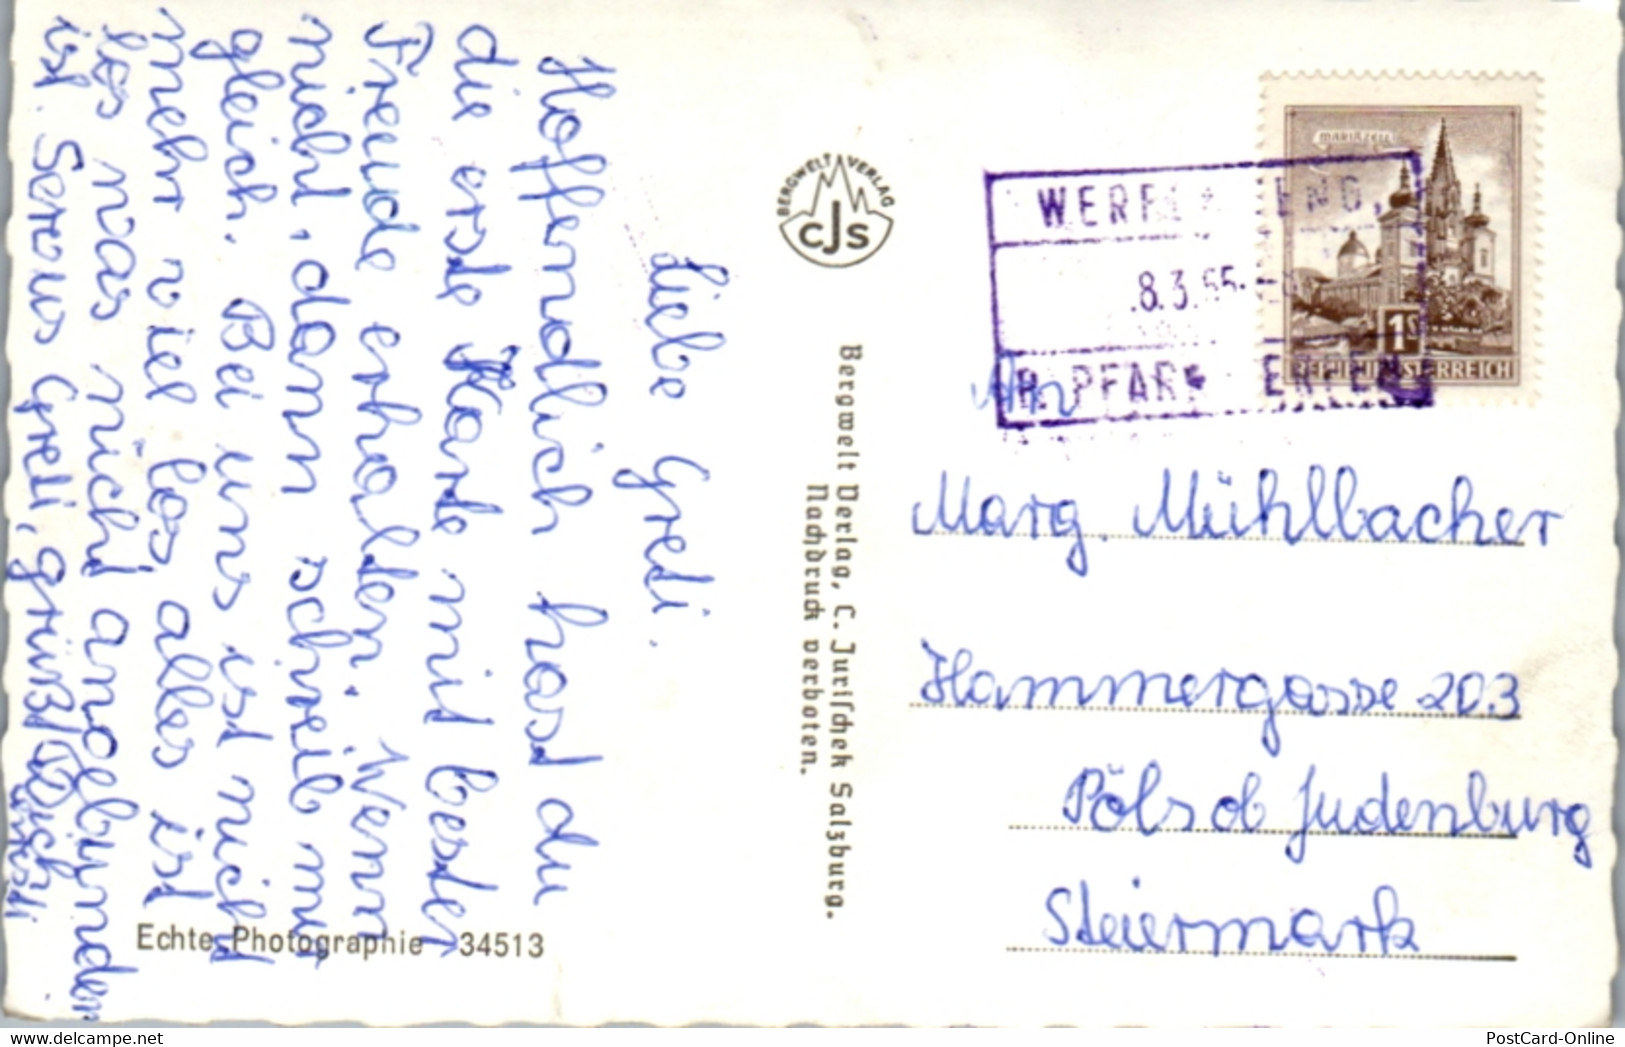 Liebe Gredi.
Hoffendlich hast du
die erste Karte mit bester
Freude erhalten. Wenn
nicht, dann schreib mir
gleich. Bei uns ist nicht
mehr viel los, alles ist
los was nicht angebunden
ist. Servus Gredi, grüßt Dich
BERGWELT VERLAG
CJS
Bergwelt Verlag, C. Jurischek Salzburg.
Nachdruck verboten.
Echte Photographie 34513
MARIAZELL
1S
REPUBLIK ÖSTERREICH
8.3.
PFARR
An
Marg. Mühlbacher
Hammergasse 203
Pöls ob Judenburg
Steiermark
PostCard-Online
www.delcampe.net